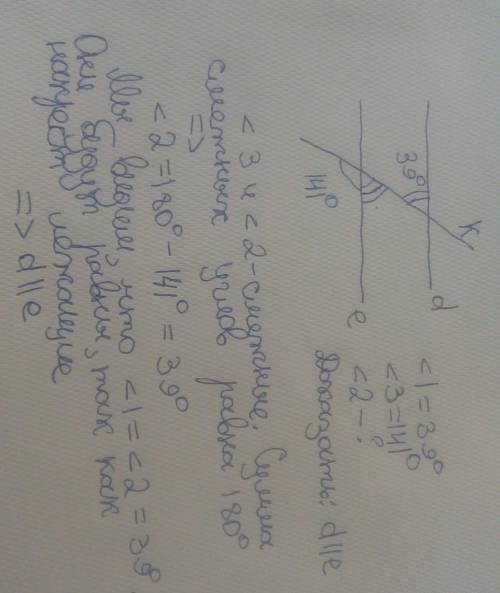 k
d
39°
141°
e
<1 = 39°
<3 = 141°
<2 - ?
Доказать: d||e
<3 и <2 - смежные. Сумма
смежных углов равна 180°
=>
<2 = 180° - 141° = 39°
Мы видим, что <1 = <2 = 39°.
Они будут равны, так как
накрест лежащие
=> d||e